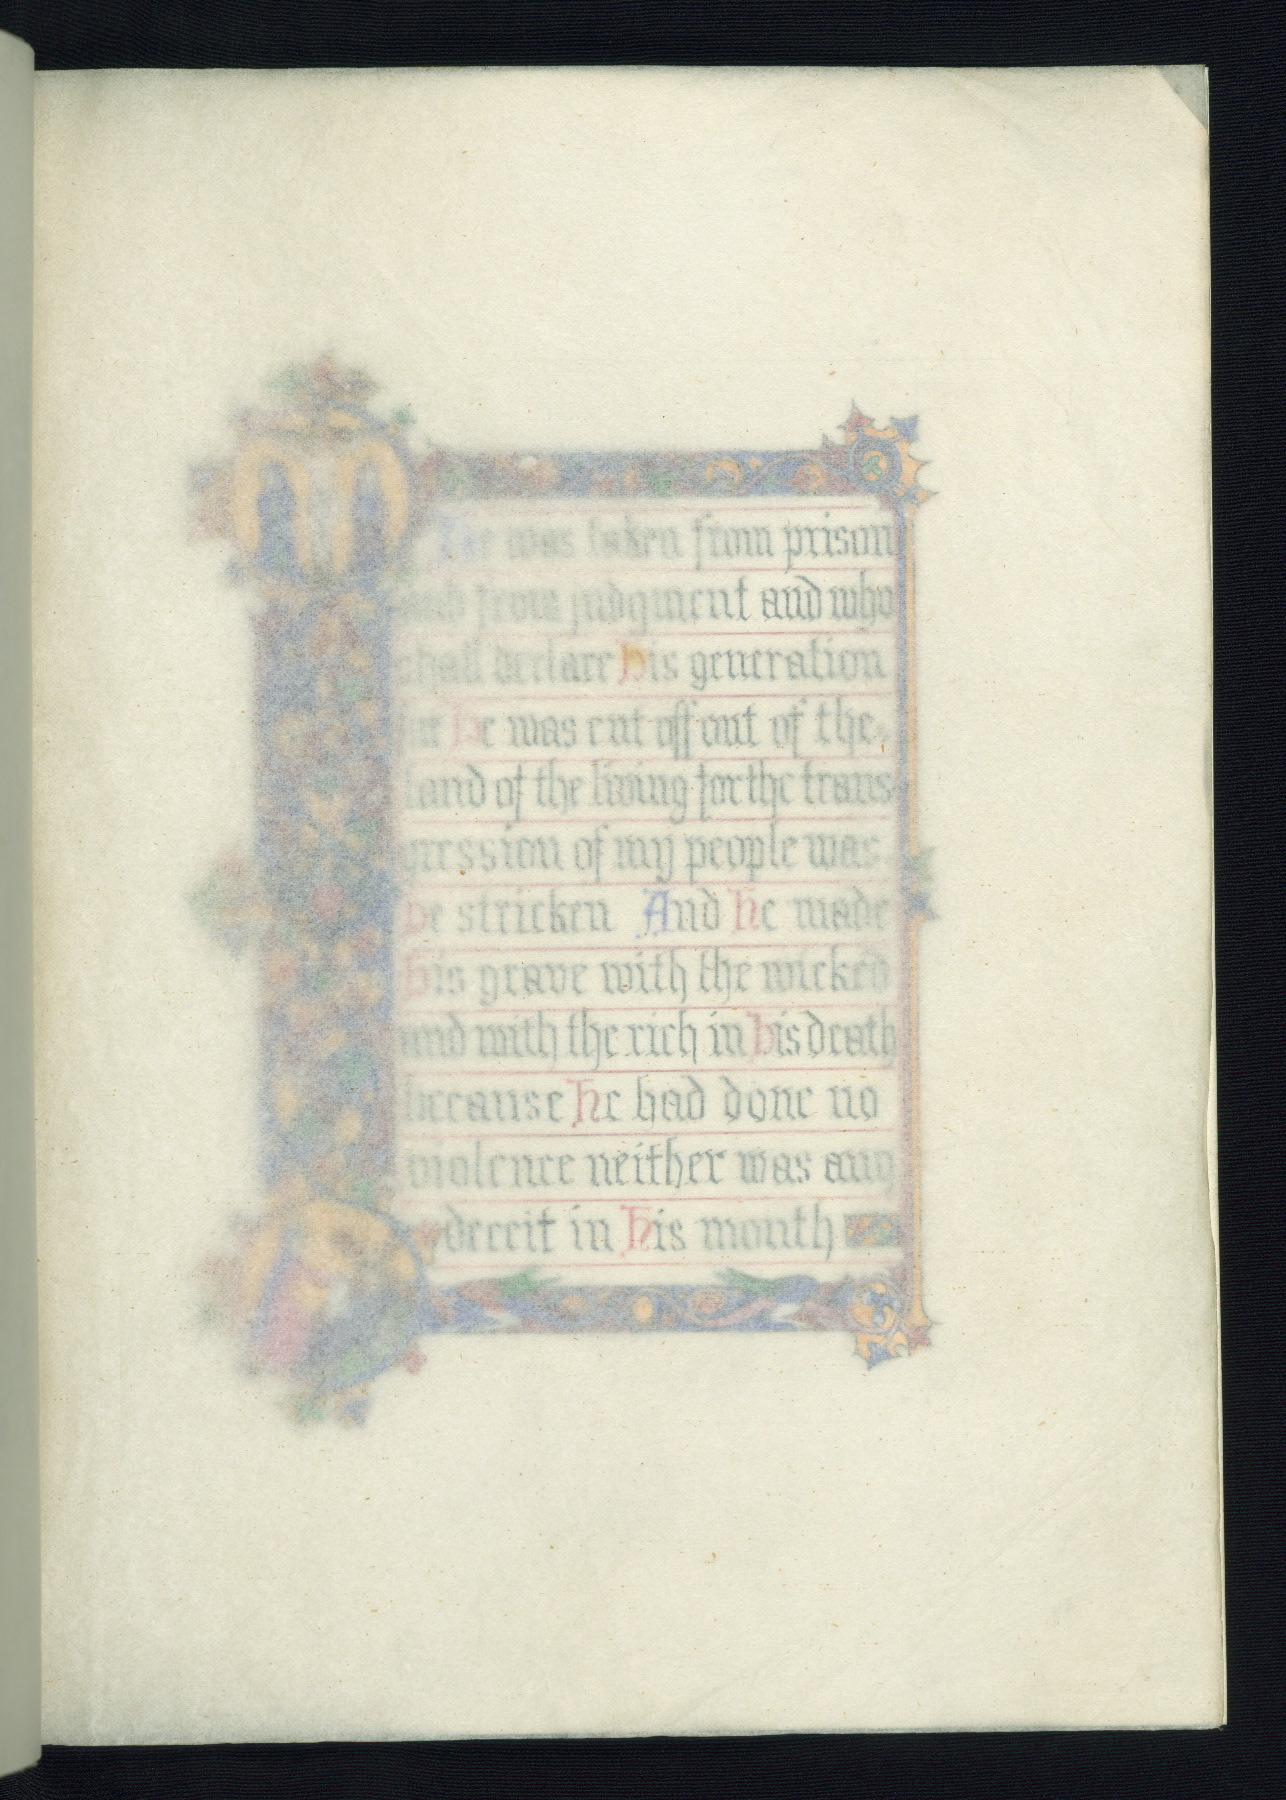 He was taken from prison
and from judgment and who
shall declare His generation
for He was cut off out of the
land of the living for the trans
gression of my people was
He stricken And He made
His grave with the wicked
and with the rich in His death
because He had done no
violence neither was any
deceit in His mouth